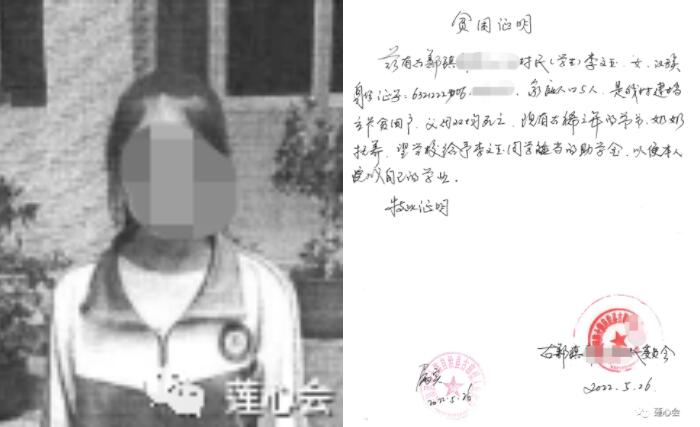 贫困证明
兹有古鄯镇 村民(学生)李文玉,女,汉族
身份证号:6321222 家庭人口5人,是我村建档
立卡贫困户,父母双双死亡,现有古稀之年的爷爷、奶奶
抚养,望学校给予李文玉同学适当的助学金,以便本人
完成自己的学业。
特此证明
古鄯镇 委员会
2022.5.26
属实
2022.5.26
莲心会
莲心会